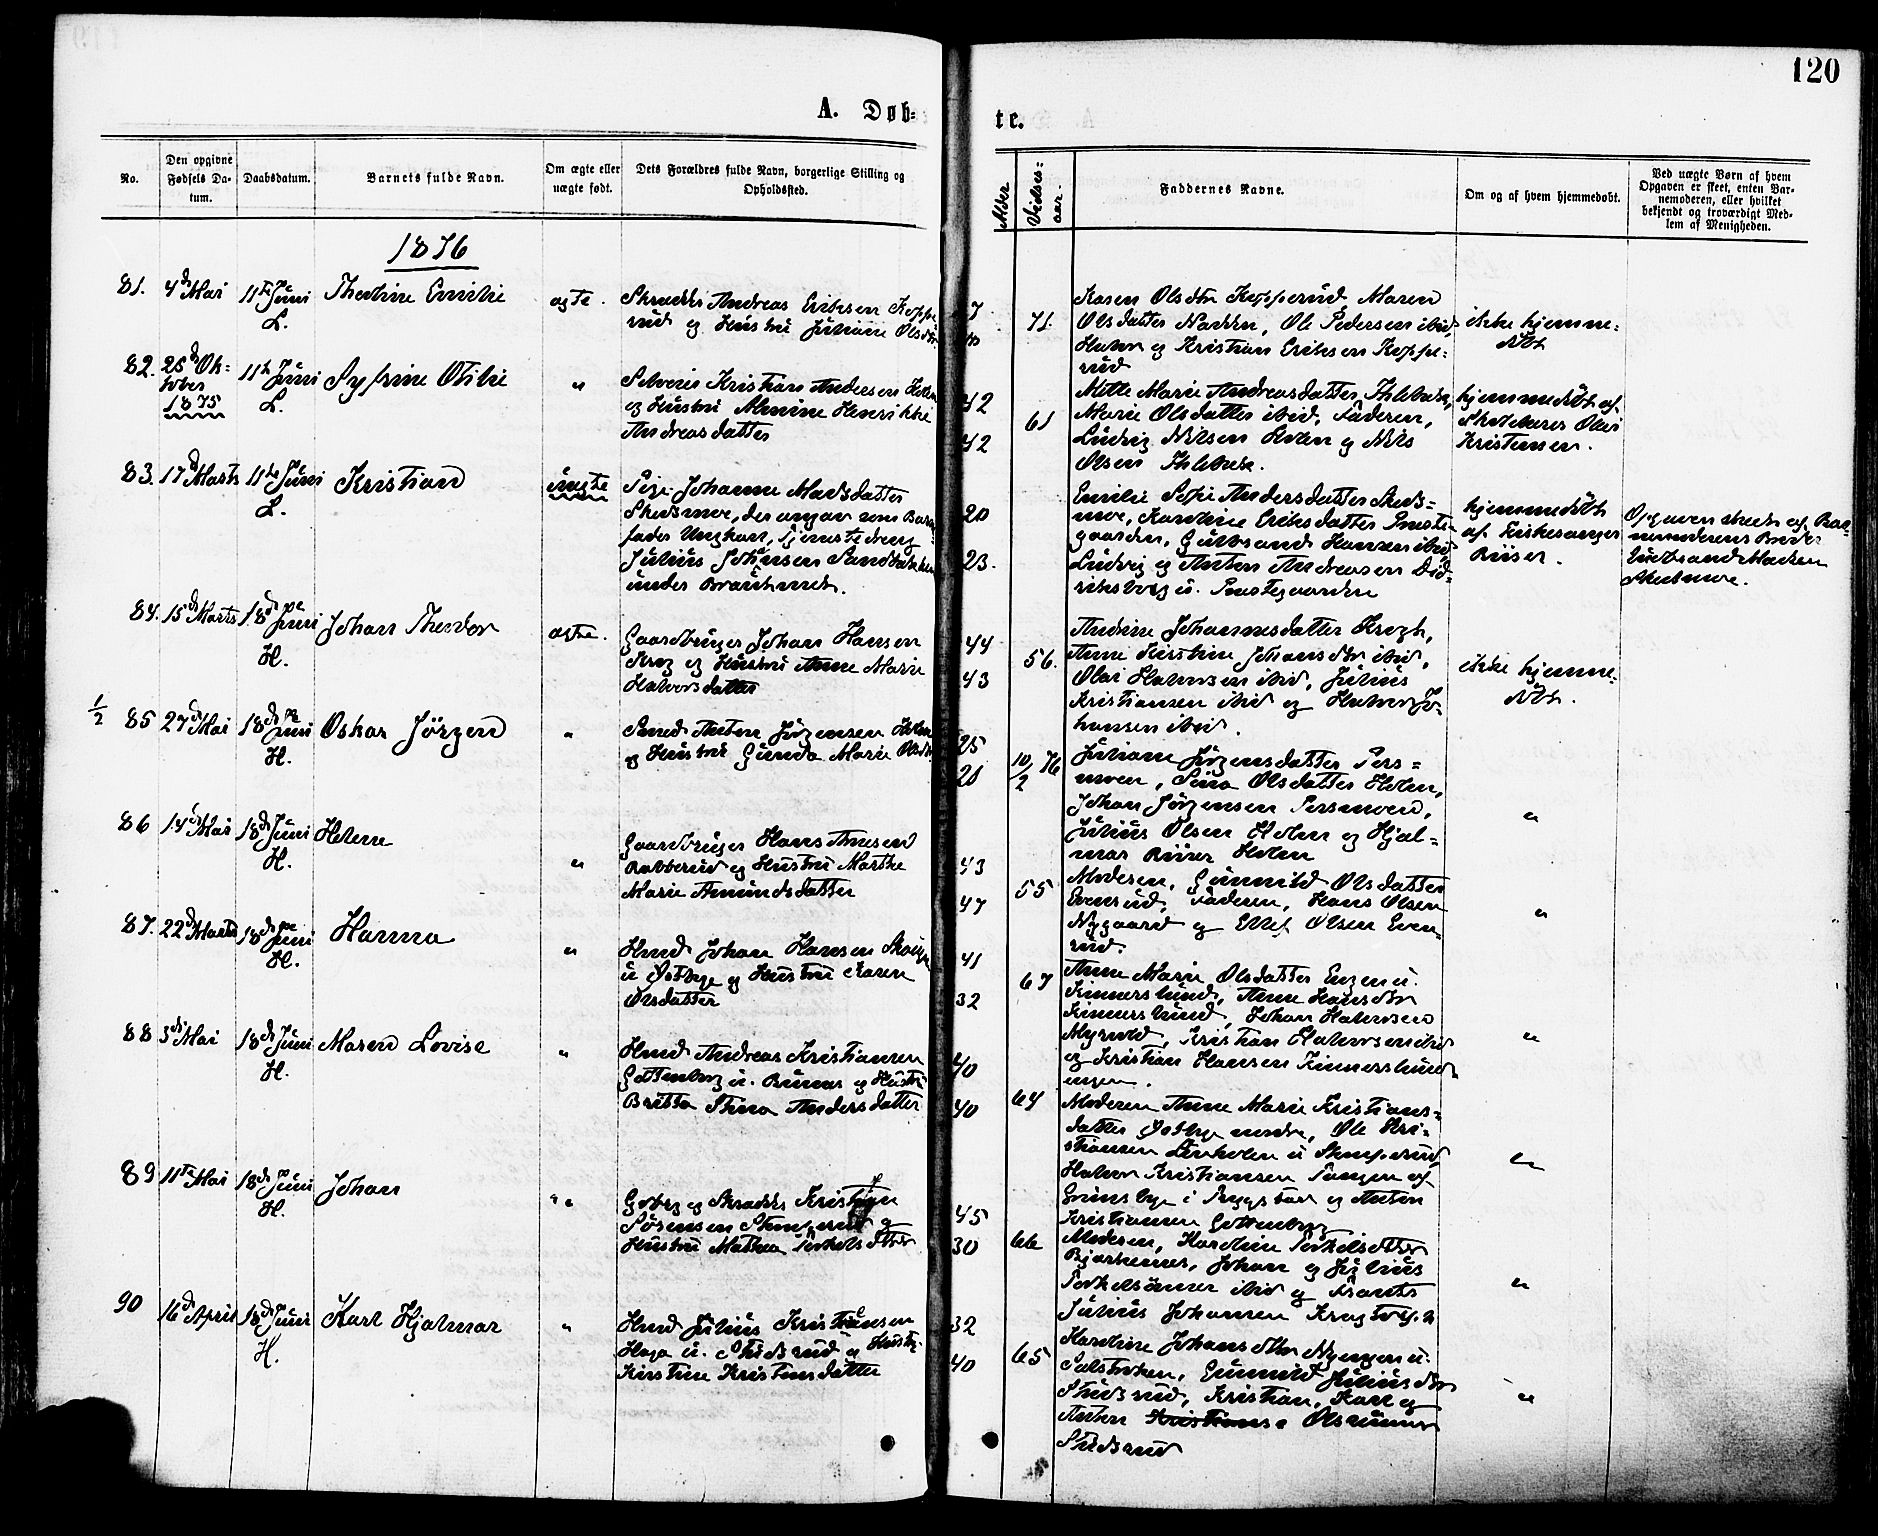 120
A. Døb=
te.
No.
Den opgivne Fødsels Da-tum.
Daabsdatum.
Barnets fulde Navn.
Om ægte eller uægte født.
Dets Forældres fulde Navn, borgerlige Stilling og Opholdssted.
Alder
Vielses=aar.
Faddernes Navne.
Om og af hvem hjemmedøbt.
Ved uægte Børn af hvem Opgaven er skeet, enten Bar-nemoderen, eller hvilket bekjendt og troværdigt Med-lem af Menigheden.
1876
81. 4de Mai 11te Juni
L.
Thorline Emilie
ægte.
Skrædder Andreas Eriksen Koppe
rud og Hustru Juliane Olsdtr
71.
Karen Olsdtr Kopperud, Maren
Olsdatter Nadden, Ole Pedersen ibid,
Halvor og Kristian Eriksen Koppe=
rud
ikke hjemme=
døbt
82. 25de Ok=
tober
1875
11te Juni
L.
"
Selveier Kristian Andersen Holen
og Hustru Almine Henrikke
Andreasdatter
42
42
61
Mette Marie Andreasdatter
Marie Olsdatter ibid, Faderen,
Ludvig Nilsen Holen og Nils
Olsen
hjemmedøbt af
Skolelærer Olaus
Kristensen.
83. 17de Marts 11te Juni
L.
Kristian
uægte
Pige Johanne Madsdatter
Skedsmoe, der angav som Barne
fader Ungkarl, Tjenestedreng
Julius Johansen Sandbakken
under Brauthmet.
20
23.
Emilie Sofie Andersdatter Skeds=
moe, Karoline Eriksdatter Præste=
gaarden, Gulbrand Hansen ibid,
Ludvig og Anton Andreasen Did=
riksborg u. Præstegaarden
hjemmedøbt
af Kirkesanger
Riiser.
Opgaven skeet af Bar=
nemoderens Broder
Gulbrand Madsen
Skedsmoe.
84. 15de Marts 18de Juni
H.
Johan Theodor
ægte.
Gaardbruger Johan Hansen
Krog og Hustru Anne Marie
Halvorsdatter
44
43
56.
Andrine Johannesdatter Krogh,
Anne Kirstine Johansdtr ibid,
Olai Halvorsen ibid, Julius
Kristiansen ibid og Halvor Jo=
hansen ibid.
ikke hjemme=
døbt.
1/2 85 27de Mai 18de Juni
H.
Oskar Jörgen
"
Smed Anton Jørgensen Holen
og Hustru Gunda Marie Olsdtr
25
21
10/2 76
Juliane Jørgensdatter Pers=
moen, Sina Olsdatter Holen,
Johan Jørgensen Persmoen,
Julius Olsen Holen og Hjal=
mar Riiser Holen
"
86 14de Mai 18de Juni
H.
Helene
"
Gaardbruger Hans Amusen
Rabberud og Hustru Marthe
Marie Amundsdatter
43
47
55
Moderen, Gunnild Olsdatter
Evensrud, Faderen, Hans Olsen
Nygaard og Ellef Olsen Even=
rud.
"
87. 22de Marts 18de Juni
H.
Hanna
"
Hmd Johan Hansen
u Østbye og Hustru Karen
Olsdatter
41
32
67
Anne Marie Olsdatter Engen u.
Kinnerslund, Anne Hansdtr
Kinnerslund, Johan Halvorsen
Myrvold, Kristian Halvorsen ibid
og Kristian Hansen Kinnerslund=
engen.
"
88 3die Mai 18de Juni
H.
Maren Lovise
"
Hmd Andreas Kristiansen
Gottenborg u. Bunes og Hustru
Britta Stina Andersdatter
40
40
64
Moderen Anne Marie Kristians=
datter Østbye nordre, Ole Kri=
stiansen Linholen u Stumperud,
Halvor Kristiansen Tangen af
Grinsbye i Ryggstad og Anton
Kristiansen Gottenborg
"
89 11te Mai 18de Juni
H.
Johan
"
Gbrg og Skrædder Kristian
Sørensen Stumperud og
Hustru Mathea Torkelsdtter
45
30
66
Moderen, Karoline Torkelsdtter
Bjørkenes, Johan og Julius
Torkelsønner ibid og Frants
Julius Johansen Kragtorp.
"
90 16de April 18de Juni
H.
Karl Hjalmar
"
Hmd Julius Kristiansen
Haga u. Studsrud og Hustru
Kirstine Kristensdatter
32
40
65
Karoline Johansdtter Nyengen u.
Gunnild Juliusdtr
Studsrud, Kristian, Karl og
Anton Olssønner
Studsrud
"